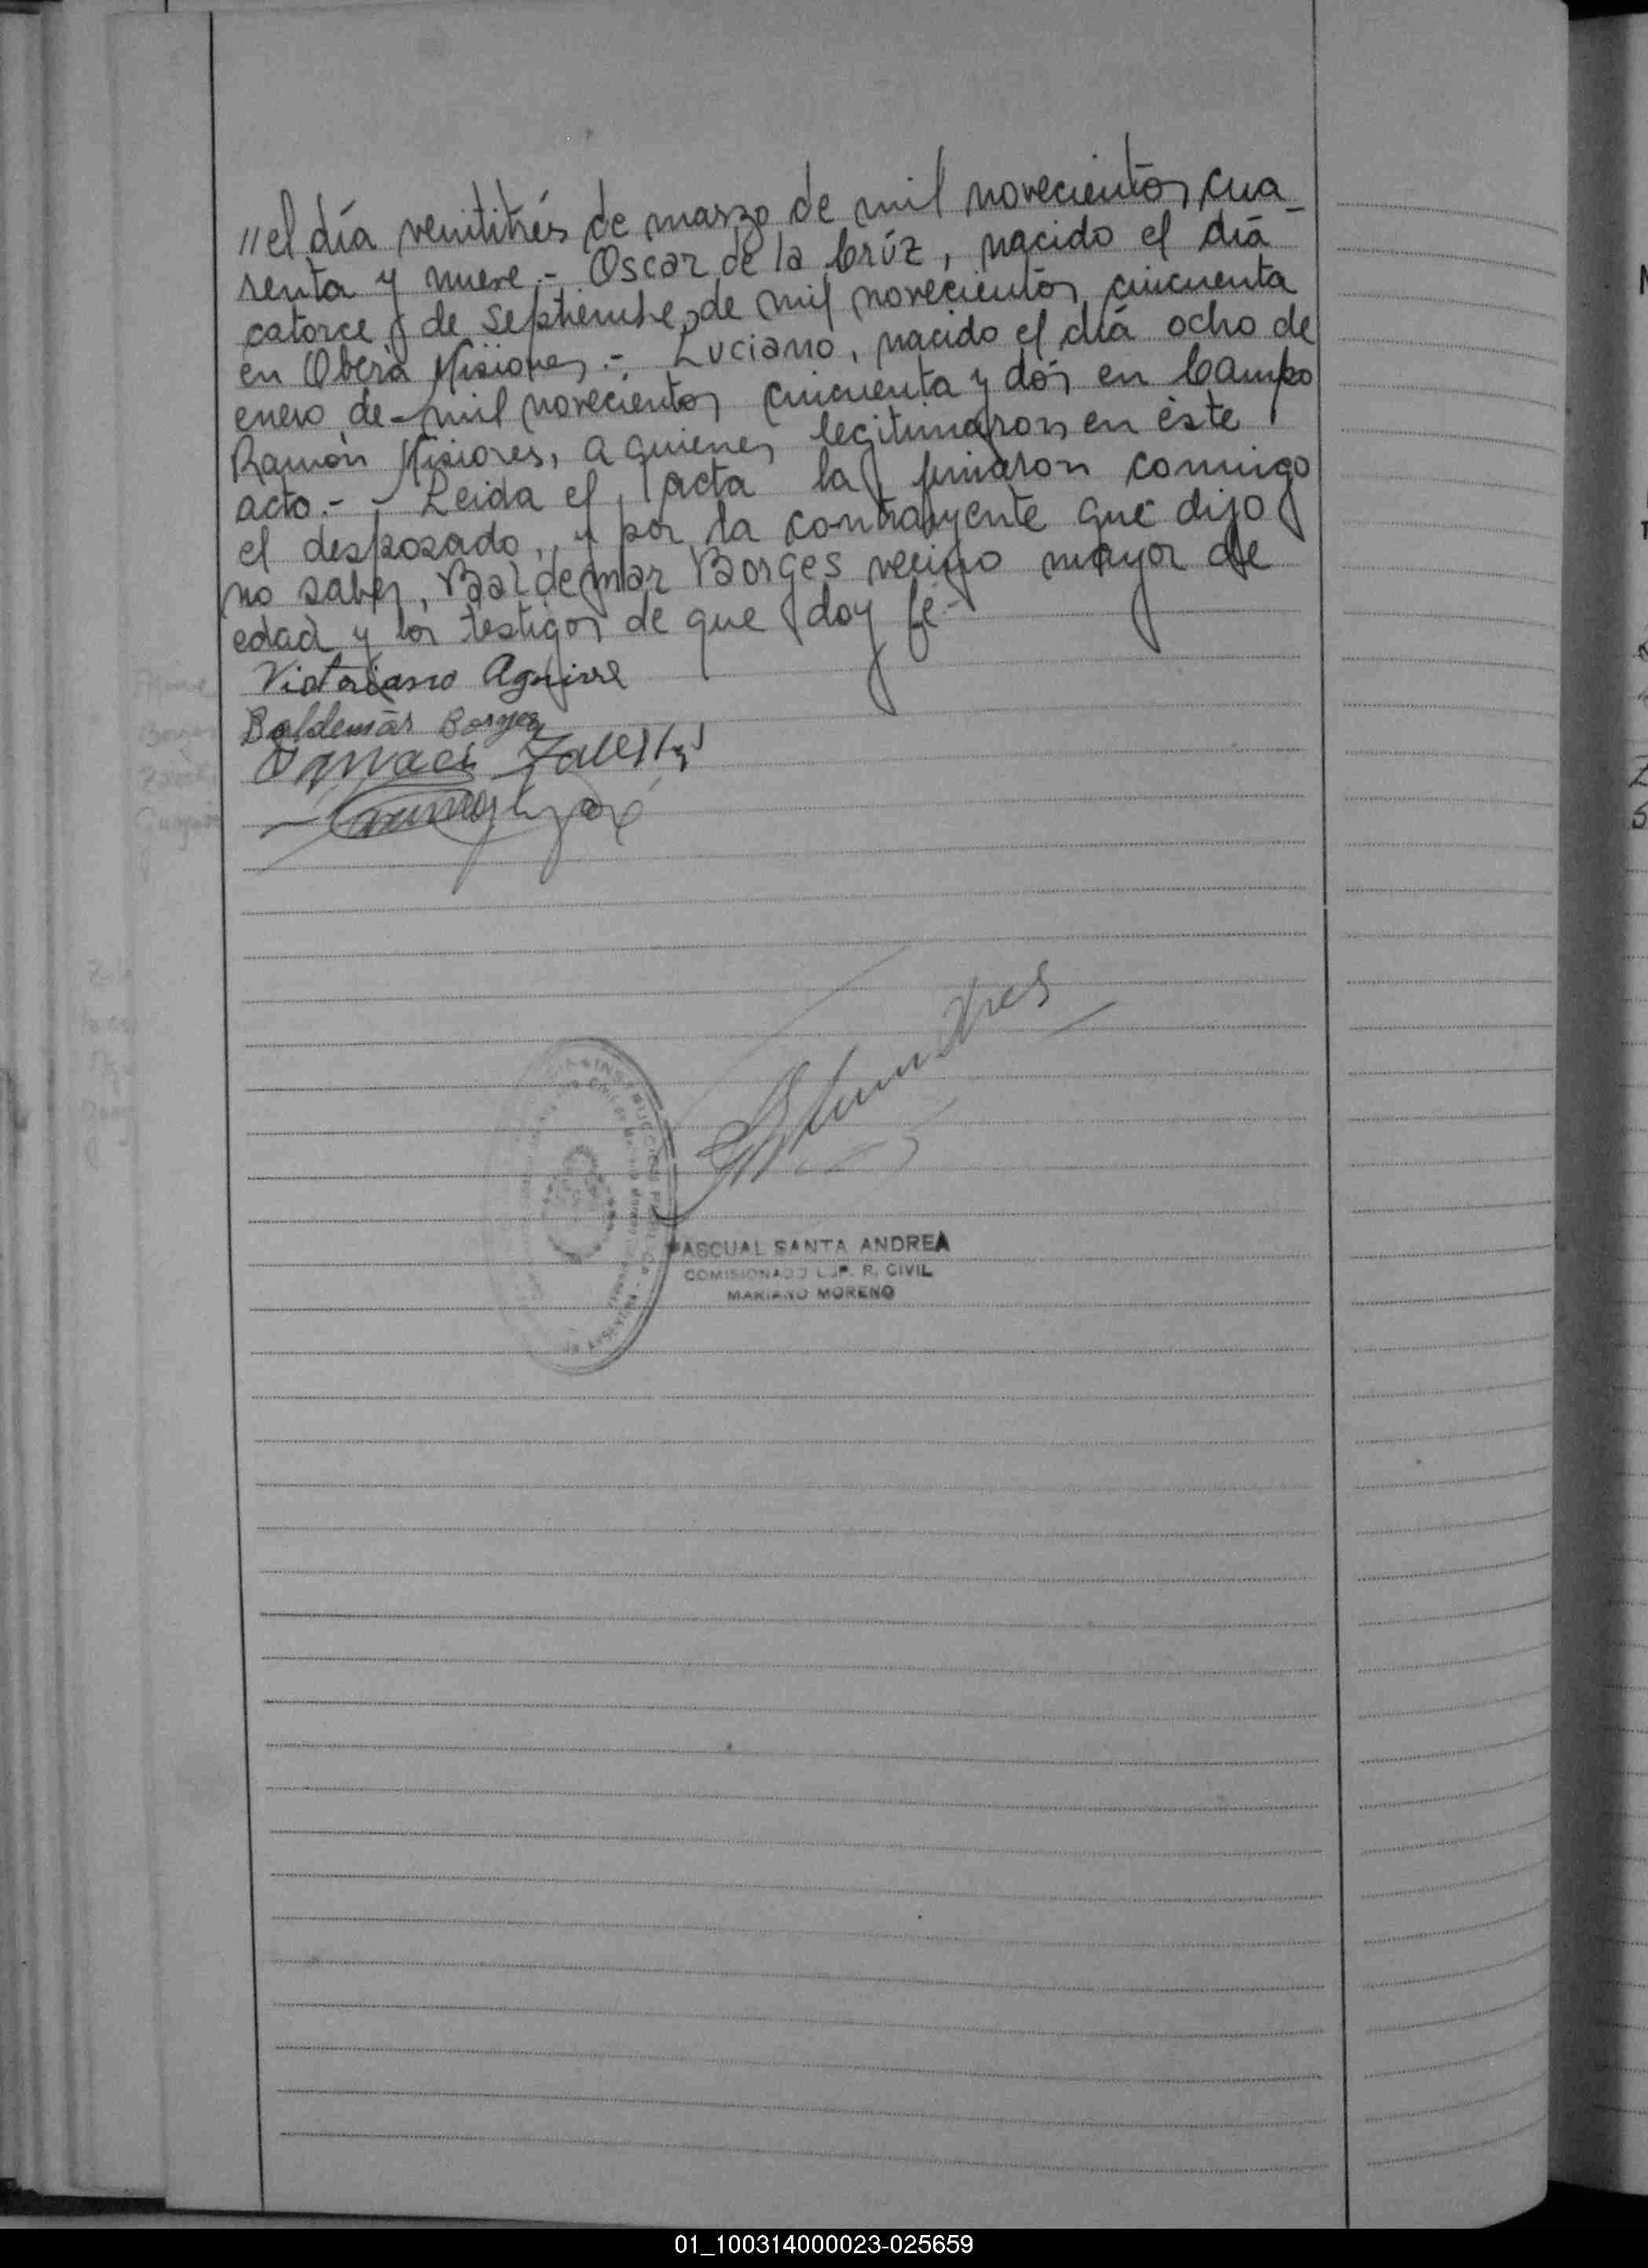 //el día veintitrés de marzo de mil novecientos cua_
renta y nueve.- Oscar de la Crúz, nacido el día
catorce de Septiembre de mil novecientos cincuenta
en Oberá Misiones.- Luciano, nacido el día ocho de
enero de mil novecientos cincuenta y dós en Campo
Ramón Misiones, a quienes legitimaron en éste
acto.- Leida el acta la firmaron conmigo
el desposado, y por la contrayente que dijo
no saber, Baldemar Borges vecino mayor de
edad y los testigos de que doy fé-
Victoriano Aguirre
Baldemar Borges
Zaleski
PASCUAL SANTA ANDREA
COMISIONADO SUP. R. CIVIL
MARIANO MORENO
01_100314000023-025659